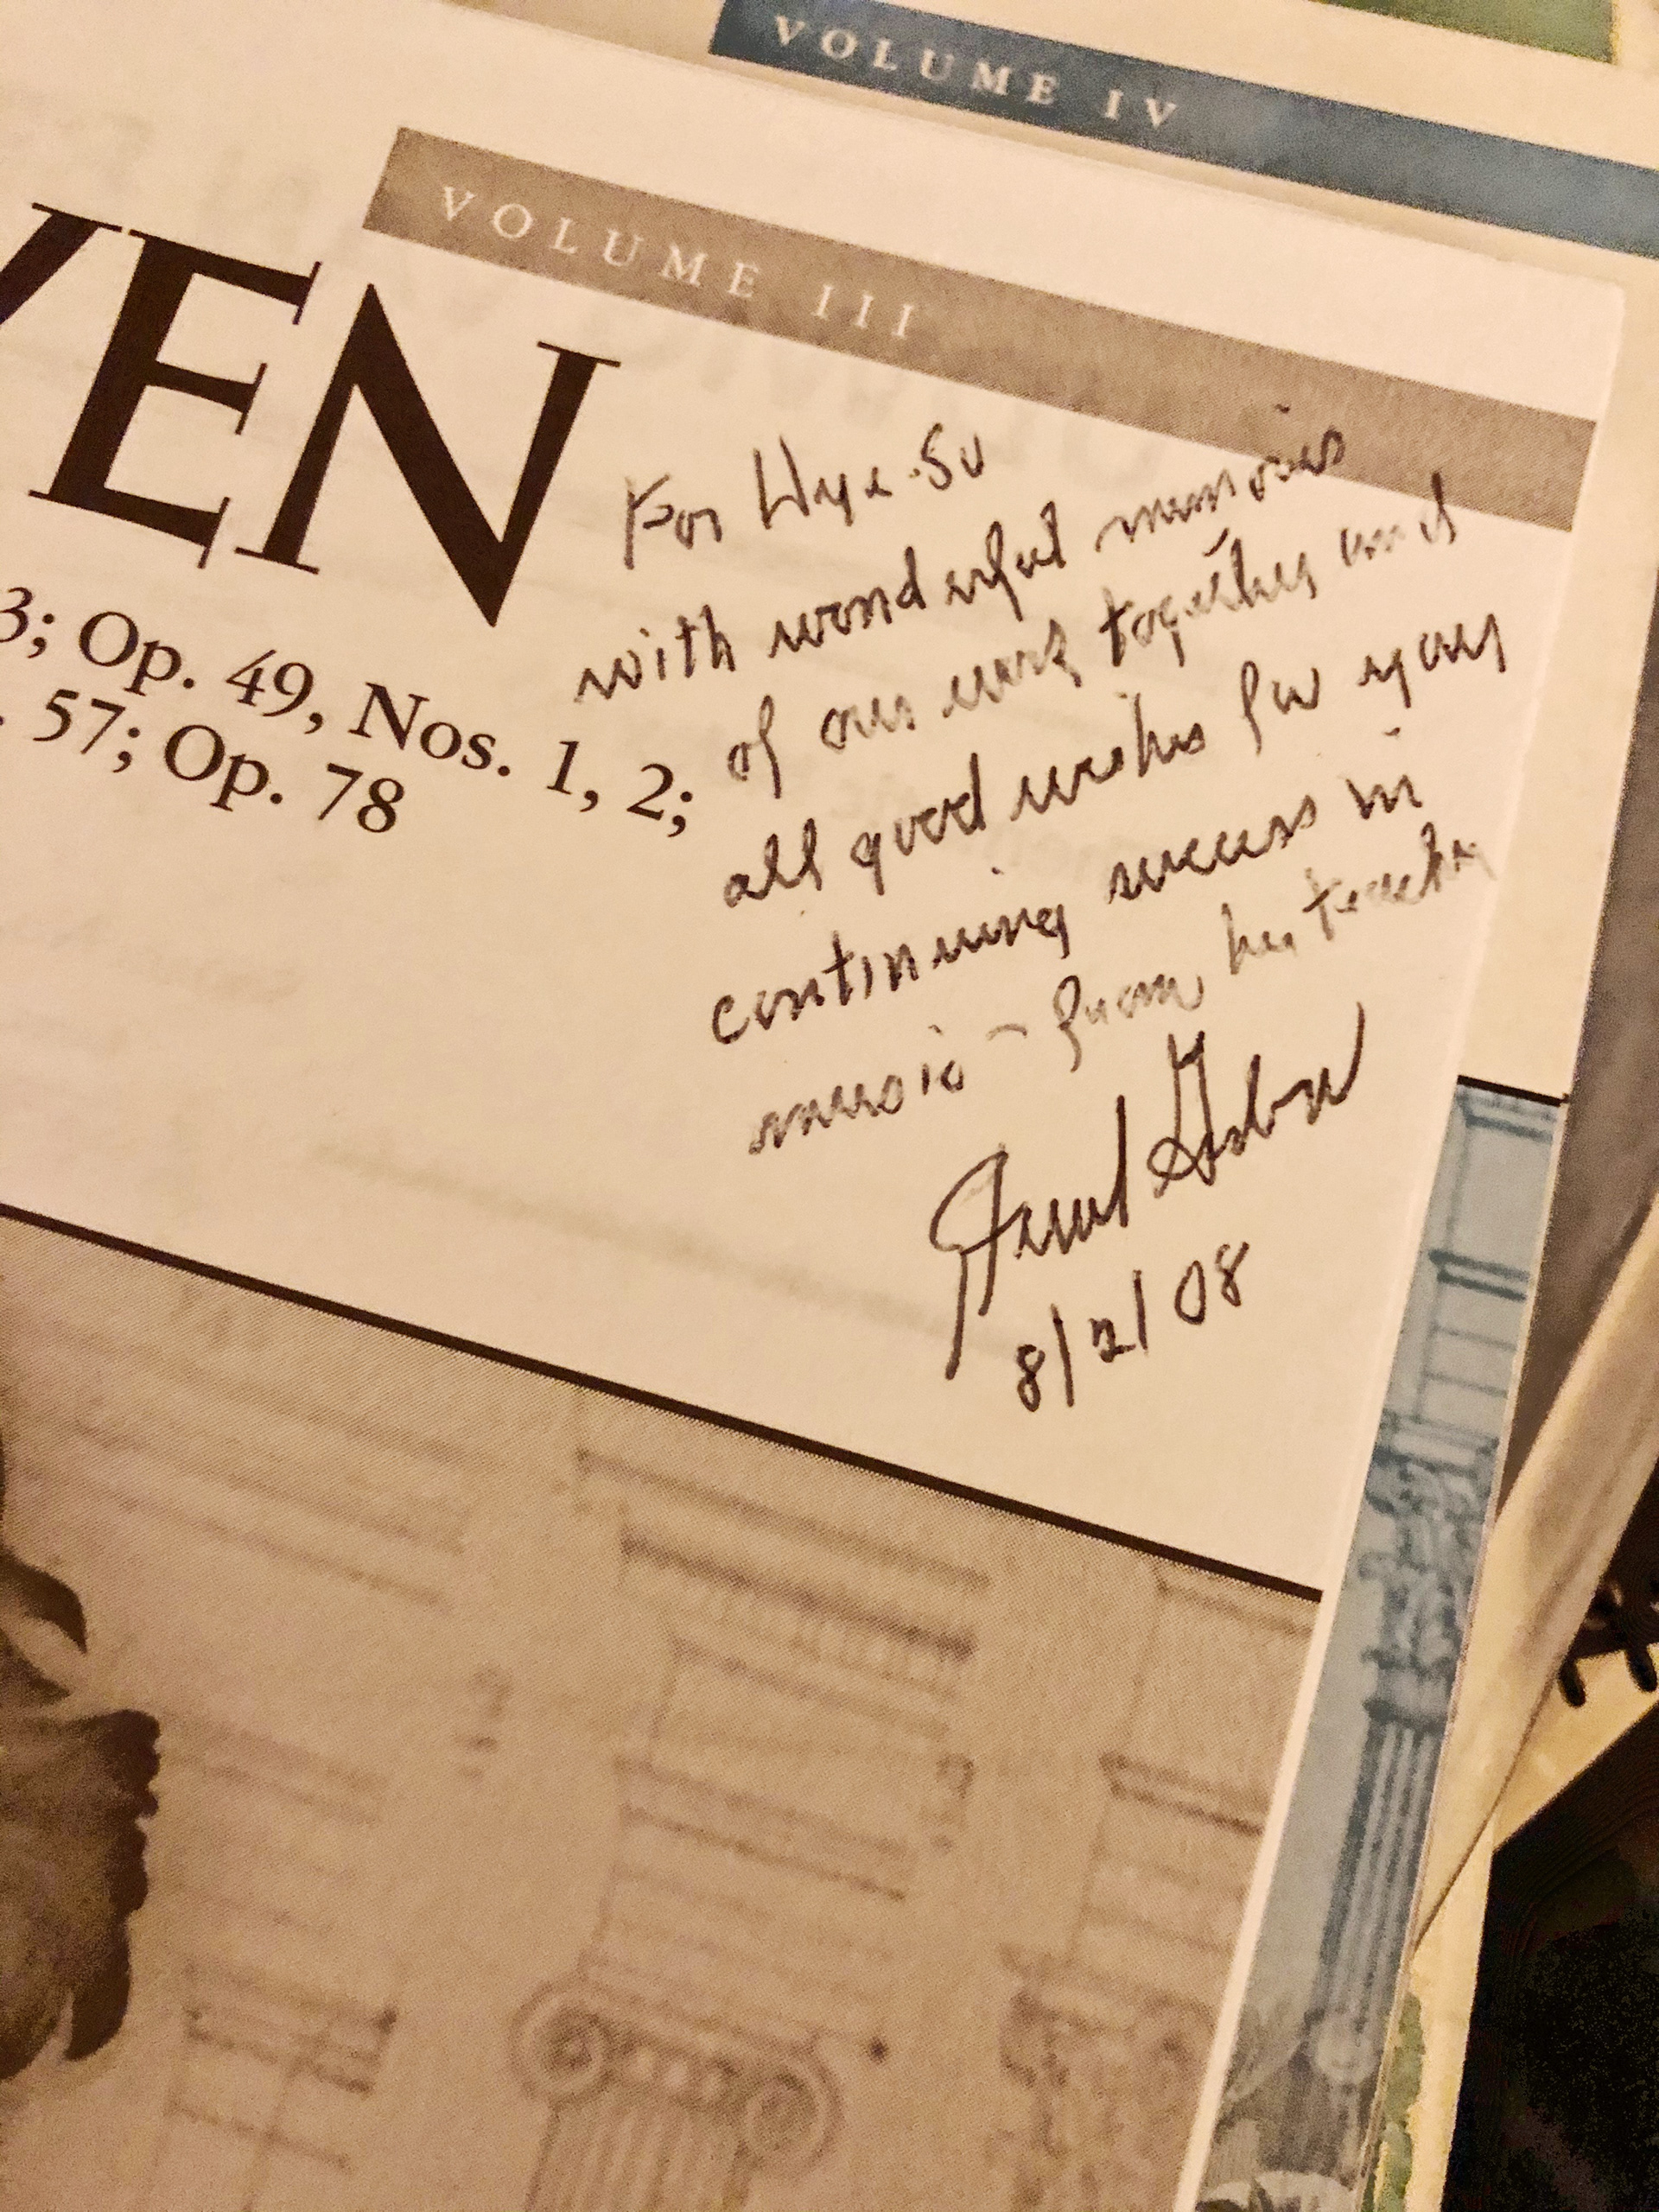 VOLUME IV
VOLUME III
VEN
3; Op. 49, Nos. 1, 2;
. 57; Op. 78
For Hye-Su
with wonderful memories
of our work together and
all good wishes for your
continuing success in
music - from her teacher
8/2/08